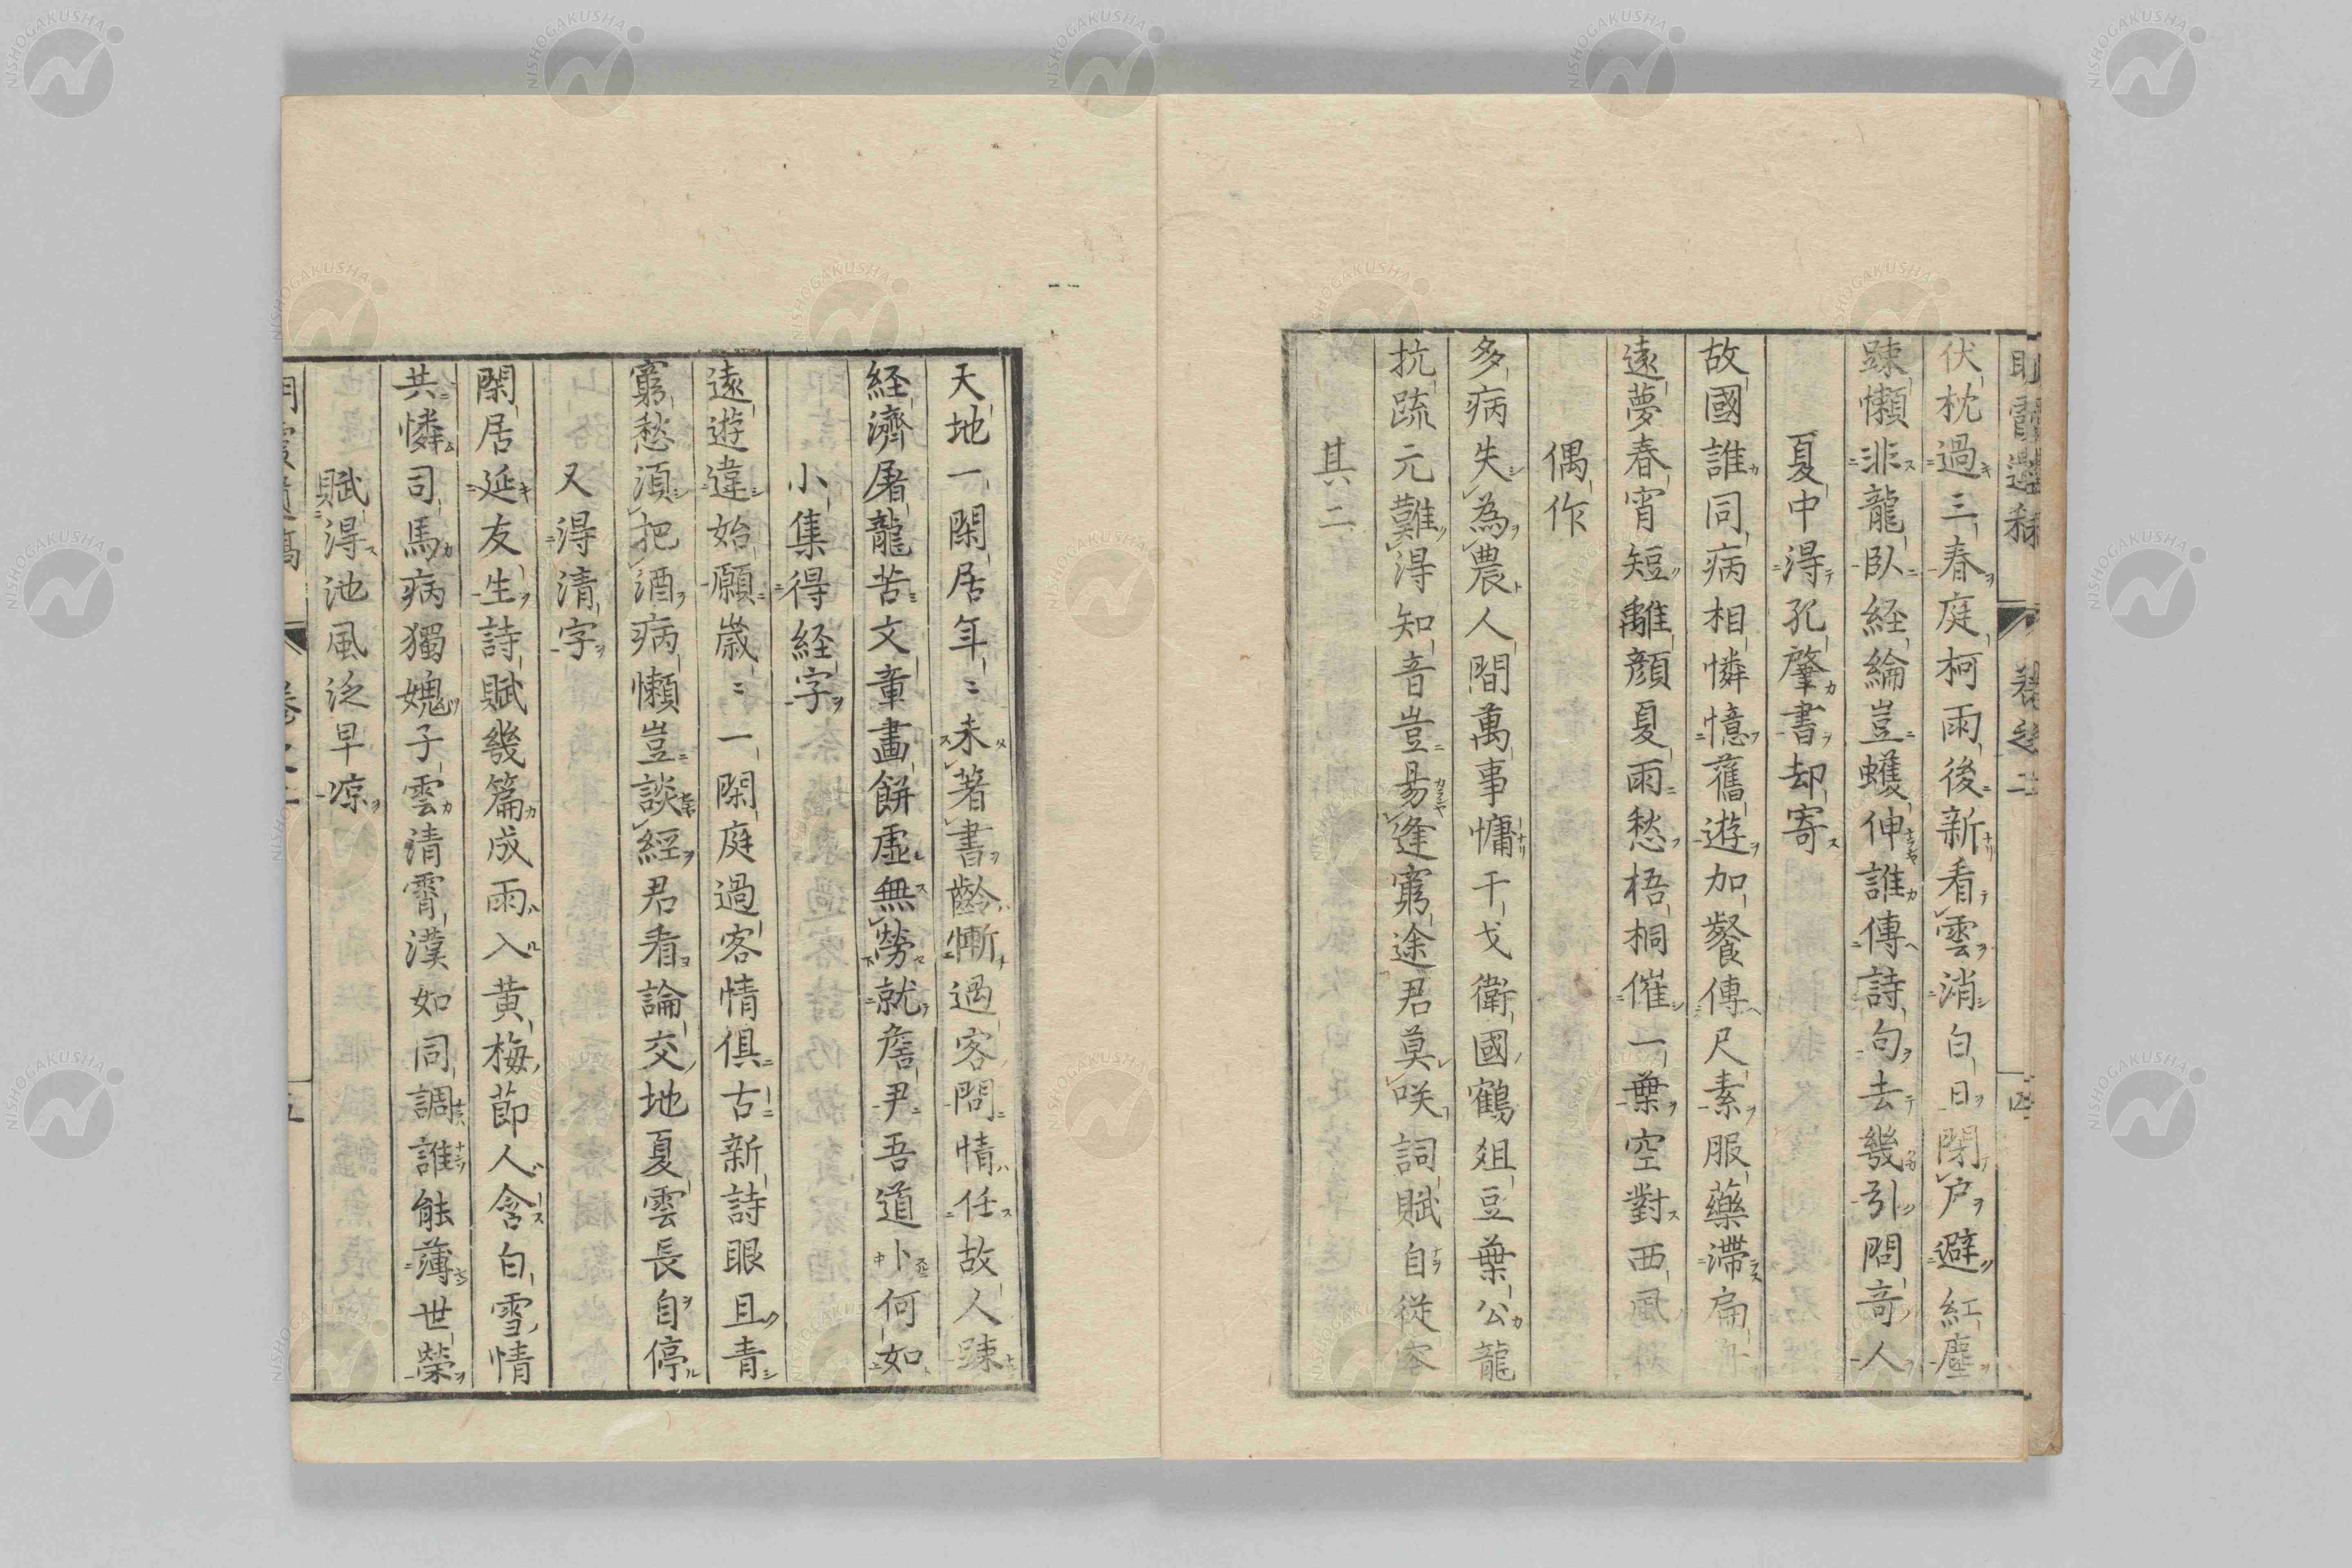 伏枕過三春庭柯雨後新看雲消白日閉戸避紅塵
踈懶非龍臥経綸豈蠖伸誰傳詩句去幾引問奇人
夏中得孔肇書却寄
故國誰同病相憐憶舊遊加餐傳尺素服藥滯扁
遠夢春宵短離顔夏雨愁梧桐催一葉空對西風
偶作
多病失為農人間萬事慵干戈衛國鶴俎豆葉公龍
抗疏元難得知音豈易逢窮途君莫咲詞賦自従容
其二
天地一閑居年〻未著書齡慚過客問情任故人踈
経濟屠龍苦文章畫餅虚無勞就詹尹吾道卜何如
小集得経字
遠遊違始願歳〻一閑庭過客情俱古新詩眼且青
窮愁須把酒病懶豈談經君看論交地夏雲長自停
又得清字
閑居延友生詩賦幾篇成雨入黄梅節人含白雪情
共憐司馬病獨媿子雲清霄漢如同調誰能薄世榮
賦得池風泛早凉